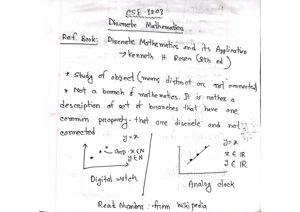 CSE-1203
Discrete Mathematics
Ref. Book: Discrete Mathematics and its Application
→ Kenneth H Rosen (8th ed)
* Study of object (means distinct or not connected)
* Not a branch of mathematics. It is rather a
description of set of branches that have one
common property - that are discrete and not
connected
y=x
gap x∈N
y∈N
Digital watch
y=x
x∈ℝ
y∈ℝ
Analog clock
Read - from Wikipedia